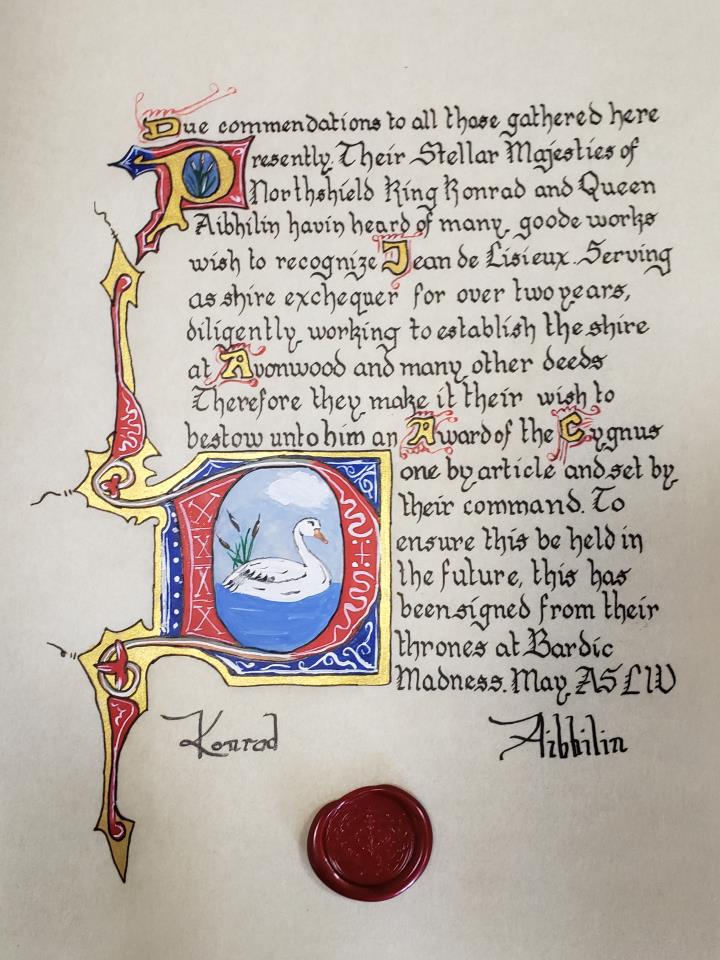 Due commendations to all those gathered here
Presently. Their Stellar Majesties of
Northshield King Konrad and Queen
Aibhilin havin heard of many goode works
wish to recognize Jean de Lisieux. Serving
as shire exchequer for over two years,
diligently working to establish the shire
at Avonwood and many other deeds
Therefore they make it their wish to
bestow unto him an Award of the Cygnus
one by article and set by
their command. To
ensure this be held in
the future, this has
been signed from their
thrones at Bardic
Madness. May AS LIV
Konrad Aibhilin